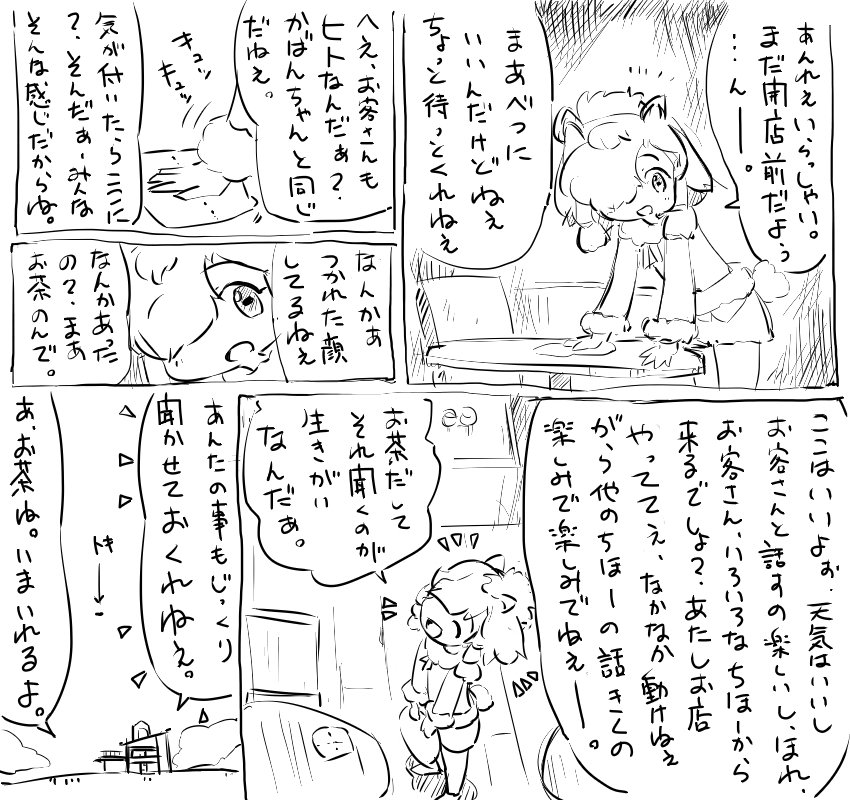 あんれぇいらっしゃい。
まだ開店前だよぅ
…んーー。
まあべつに
いいんだけどねぇ
ちょっと待っとくれねぇ
へえ、お客さんも
ヒトなんだぁ？
かばんちゃんと同じ
だねぇ。
キュッ
キュッ
気が付いたらここに
？、そんだぁーみんな
そんな感じだからね。
なんかぁ
つかれた顔
してるねぇ
なんかあった
の？、まぁ
お茶のんで。
ここはいいよぉ、天気はいいし
お客さんと話すの楽しいし、ほれ、
お客さん、いろいろなちほーから
来るでしょ？、あたしお店
やっててぇ、なかなか動けねぇ
がら他のちほーの話きくの
楽しみで楽しみでねぇーー。
お茶だして
それ聞くのが
生きがい
なんだぁ。
あんたの事もじっくり
聞かせておくれねぇ。
トキ
あ、お茶ね。いまいれるよ。